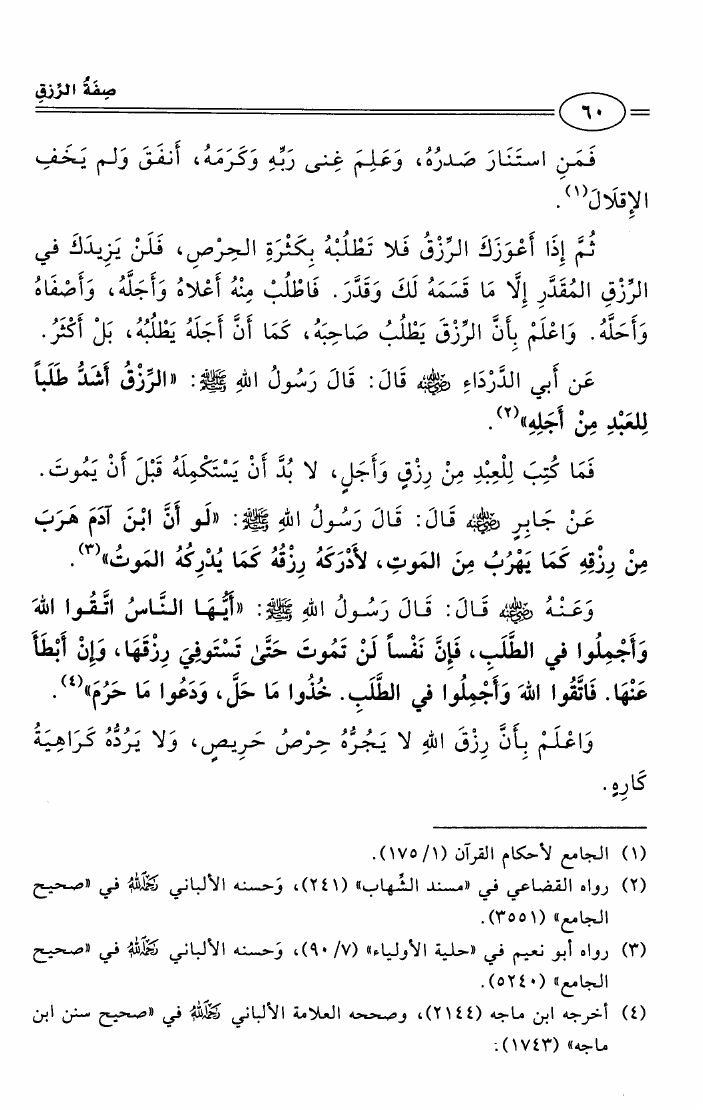 صِفَةُ الرِّزقِ
٦٠
فَمَنِ استَنَارَ صَدرُهُ، وَعَلِمَ غِنى رَبِّهِ وَكَرَمَهُ، أَنفَقَ وَلم يَخَفِ
الإِقلَالَ(١).
ثُمَّ إِذَا أَعْوَزَكَ الرِّزْقُ فَلا تَطْلُبْهُ بِكَثْرَةِ الحِرْصِ، فَلَنْ يَزِيدَكَ في
الرِّزْقِ المُقَدَّرِ إِلَّا مَا قَسَمَهُ لَكَ وَقَدَّرَ. فَاطْلُبْ مِنْهُ أَعْلاهُ وَأَجَلَّهُ، وَأَصْفَاهُ
وَأَحَلَّهُ. وَاعْلَمْ بِأَنَّ الرِّزْقَ يَطْلُبُ صَاحِبَهُ، كَمَا أَنَّ أَجَلَهُ يَطْلُبُهُ، بَلْ أَكْثَرُ.
عَن أَبي الدَّرْدَاءِ رضي الله عنه قَالَ: قَالَ رَسُولُ اللهِ ﷺ: «الرِّزْقُ أَشَدُّ طَلَباً
لِلعَبْدِ مِنْ أَجَلِهِ»(٢).
فَمَا كُتِبَ لِلْعِبْدِ مِنْ رِزْقٍ وَأَجَلٍ، لا بُدَّ أَنْ يَسْتَكْمِلَهُ قَبْلَ أَنْ يَمُوتَ.
عَنْ جَابِرٍ رضي الله عنه قَالَ: قَالَ رَسُولُ اللهِ ﷺ: «لَو أَنَّ ابْنَ آدَمَ هَرَبَ
مِنْ رِزْقِهِ كَمَا يَهْرُبُ مِنَ المَوتِ، لأَدْرَكَهُ رِزْقُهُ كَمَا يُدْرِكُهُ المَوتُ»(٣).
وَعَنْهُ رضي الله عنه قَالَ: قَالَ رَسُولُ اللهِ ﷺ: «أَيُّهَا النَّاسُ اتَّقُوا اللهَ
وَأَجْمِلُوا في الطَّلَبِ، فَإِنَّ نَفْساً لَنْ تَمُوتَ حَتَّىٰ تَسْتَوفِيَ رِزْقَهَا، وَإِنْ أَبْطَأَ
عَنْهَا. فَاتَّقُوا اللهَ وَأَجْمِلُوا في الطَّلَبِ. خُذُوا مَا حَلَّ، وَدَعُوا مَا حَرُمَ»(٤).
وَاعْلَمْ بِأَنَّ رِزْقَ اللهِ لا يَجُرُّهُ حِرْصُ حَرِيصٍ، وَلا يَرُدُّهُ كَرَاهِيَةُ
كَارِهٍ.
(١) الجامع لأحكام القرآن (١/ ١٧٥).
(٢) رواه القضاعي في «مسند الشِّهاب» (٢٤١)، وَحسنه الألباني رحمه الله في «صحيح
الجامع» (٣٥٥١).
(٣) رواه أبو نعيم في «حلية الأولياء» (٧/ ٩٠)، وَحسنه الألباني رحمه الله في «صحيح
الجامع» (٥٢٤٠).
(٤) أخرجه ابن ماجه (٢١٤٤)، وصححه العلامة الألباني رحمه الله في «صحيح سنن ابن
ماجه» (١٧٤٣).